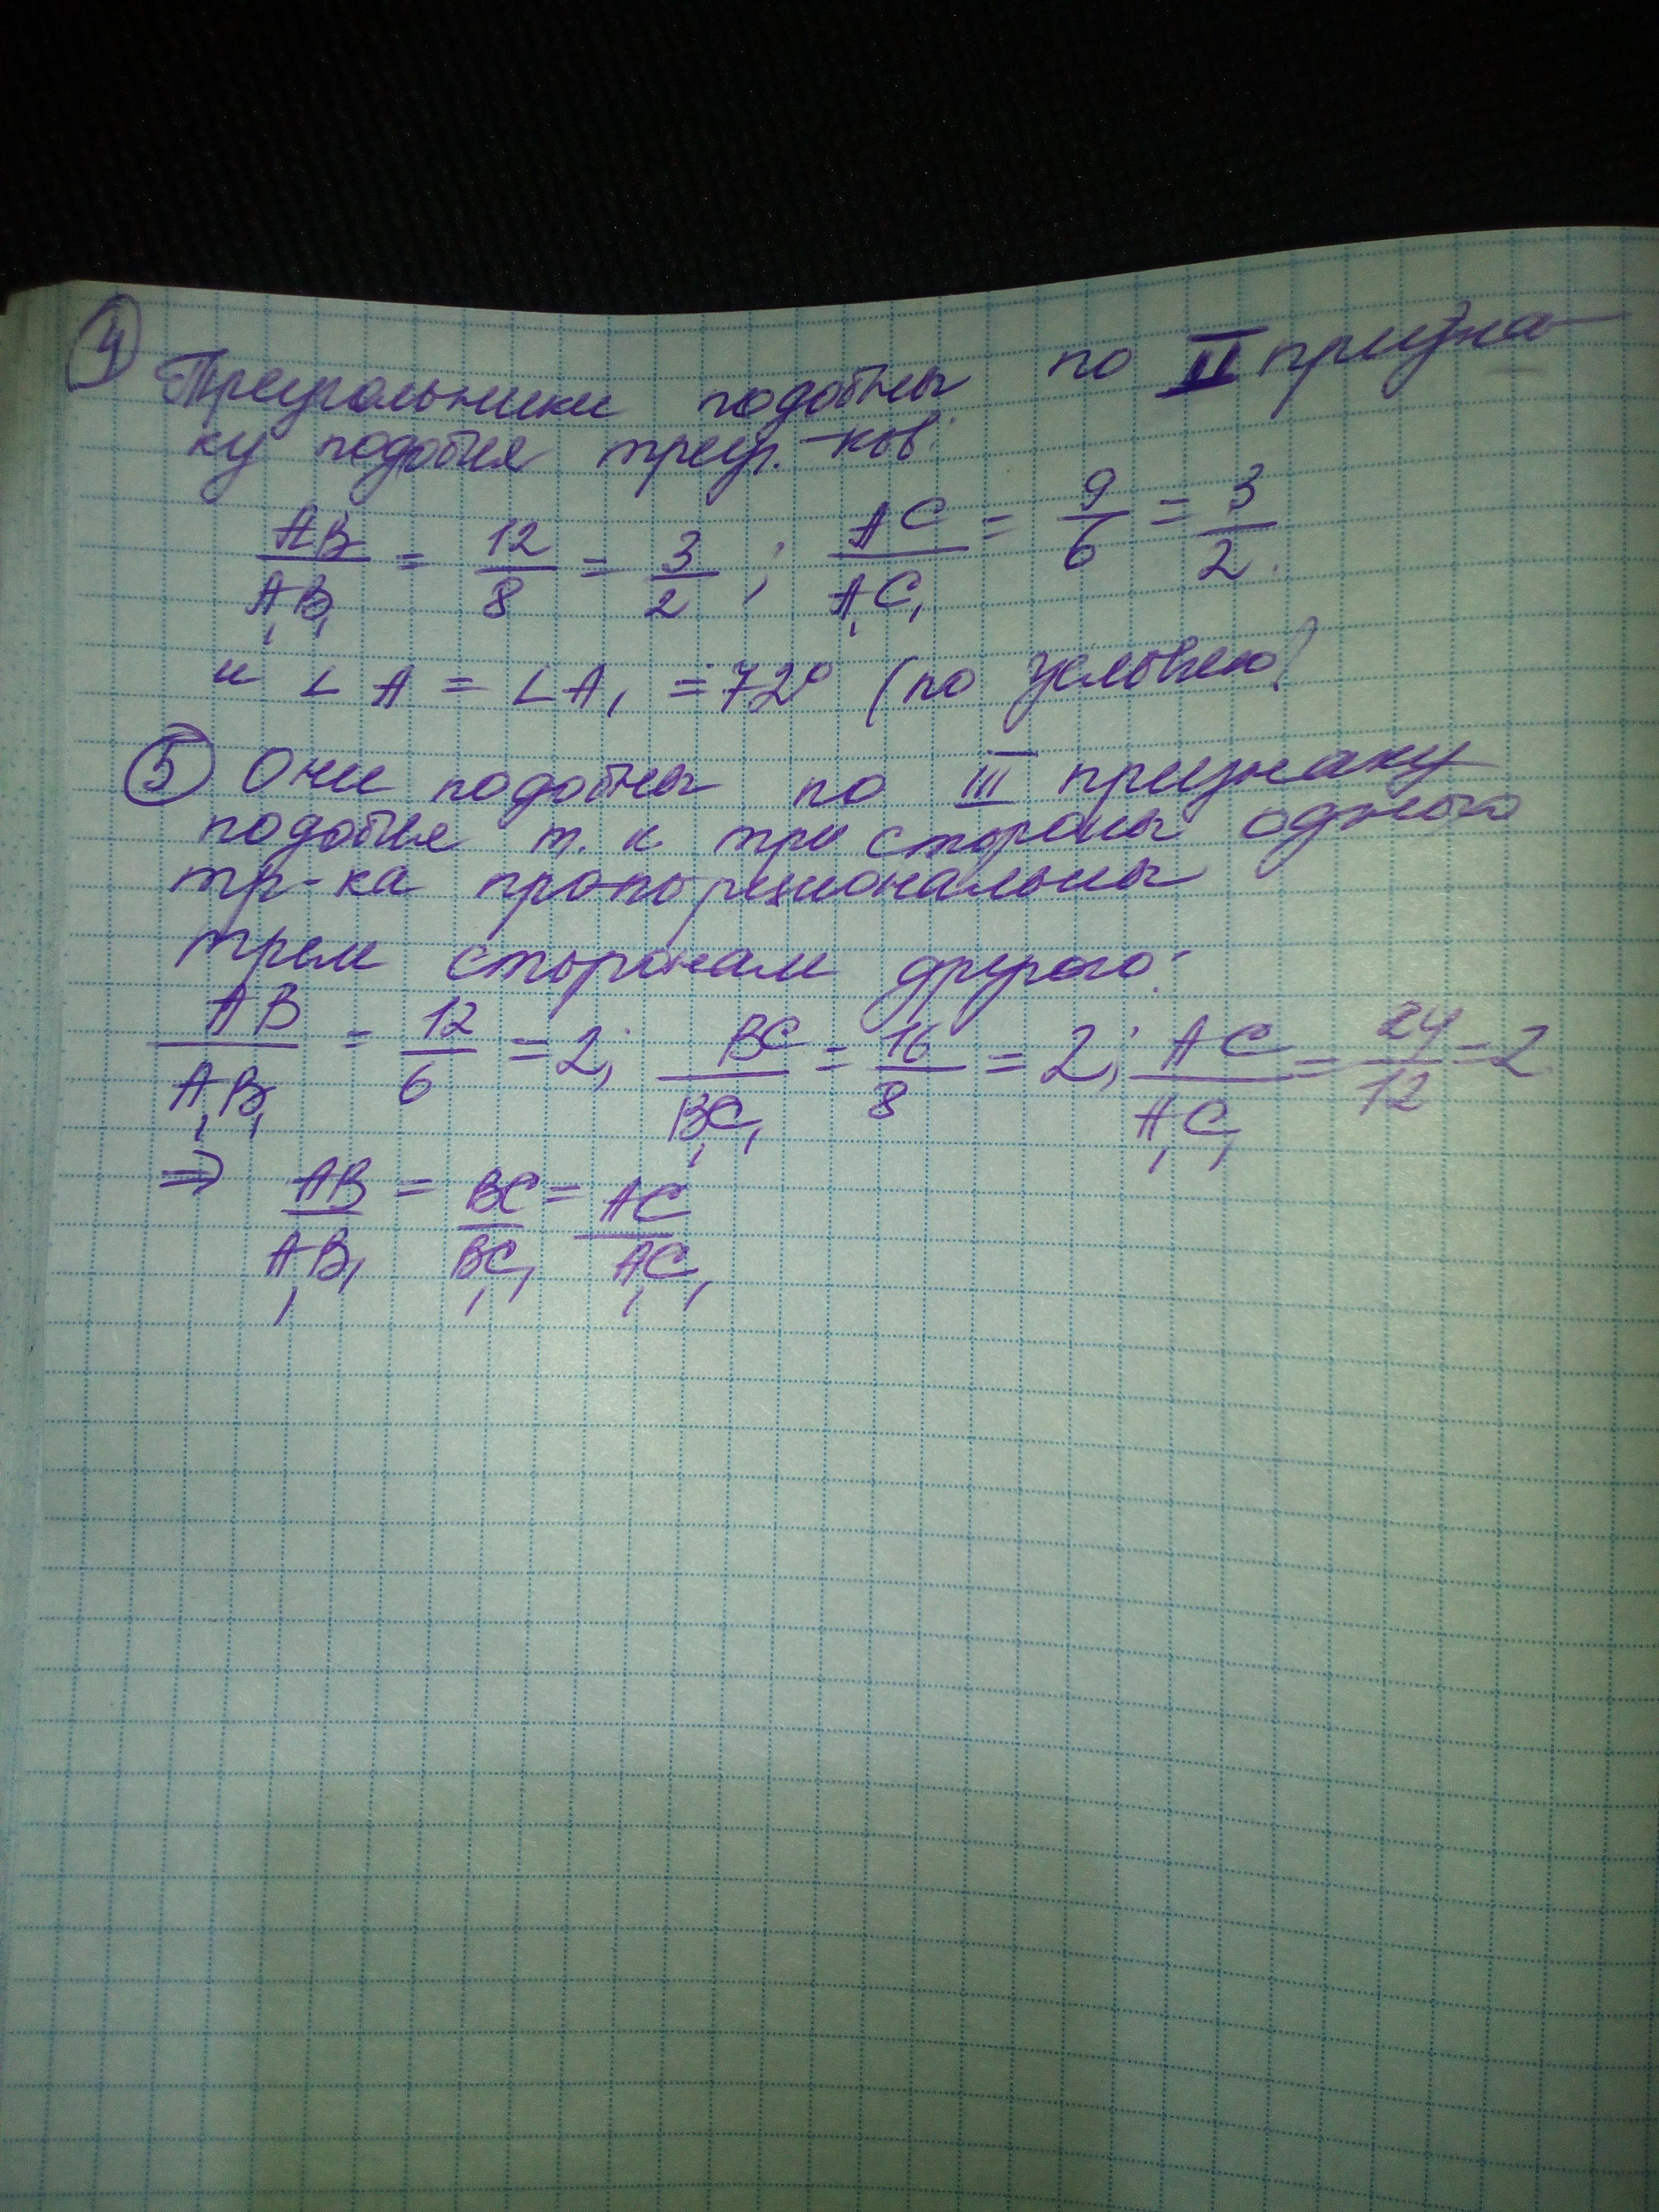 ④ Треугольники подобны по II призна-
ку подобия треуг.-ков:
AB/A₁B₁ = 12/8 = 3/2 ; AC/A₁C₁ = 9/6 = 3/2.
и ∠A = ∠A₁ = 72° (по условию)
⑤ Они подобны по III признаку
подобия т. к. три стороны одного
тр-ка пропорциональны
трем сторонам другого:
AB/A₁B₁ = 12/6 = 2; BC/B₁C₁ = 16/8 = 2; AC/A₁C₁ = 24/12 = 2
⇒ AB/A₁B₁ = BC/B₁C₁ = AC/A₁C₁